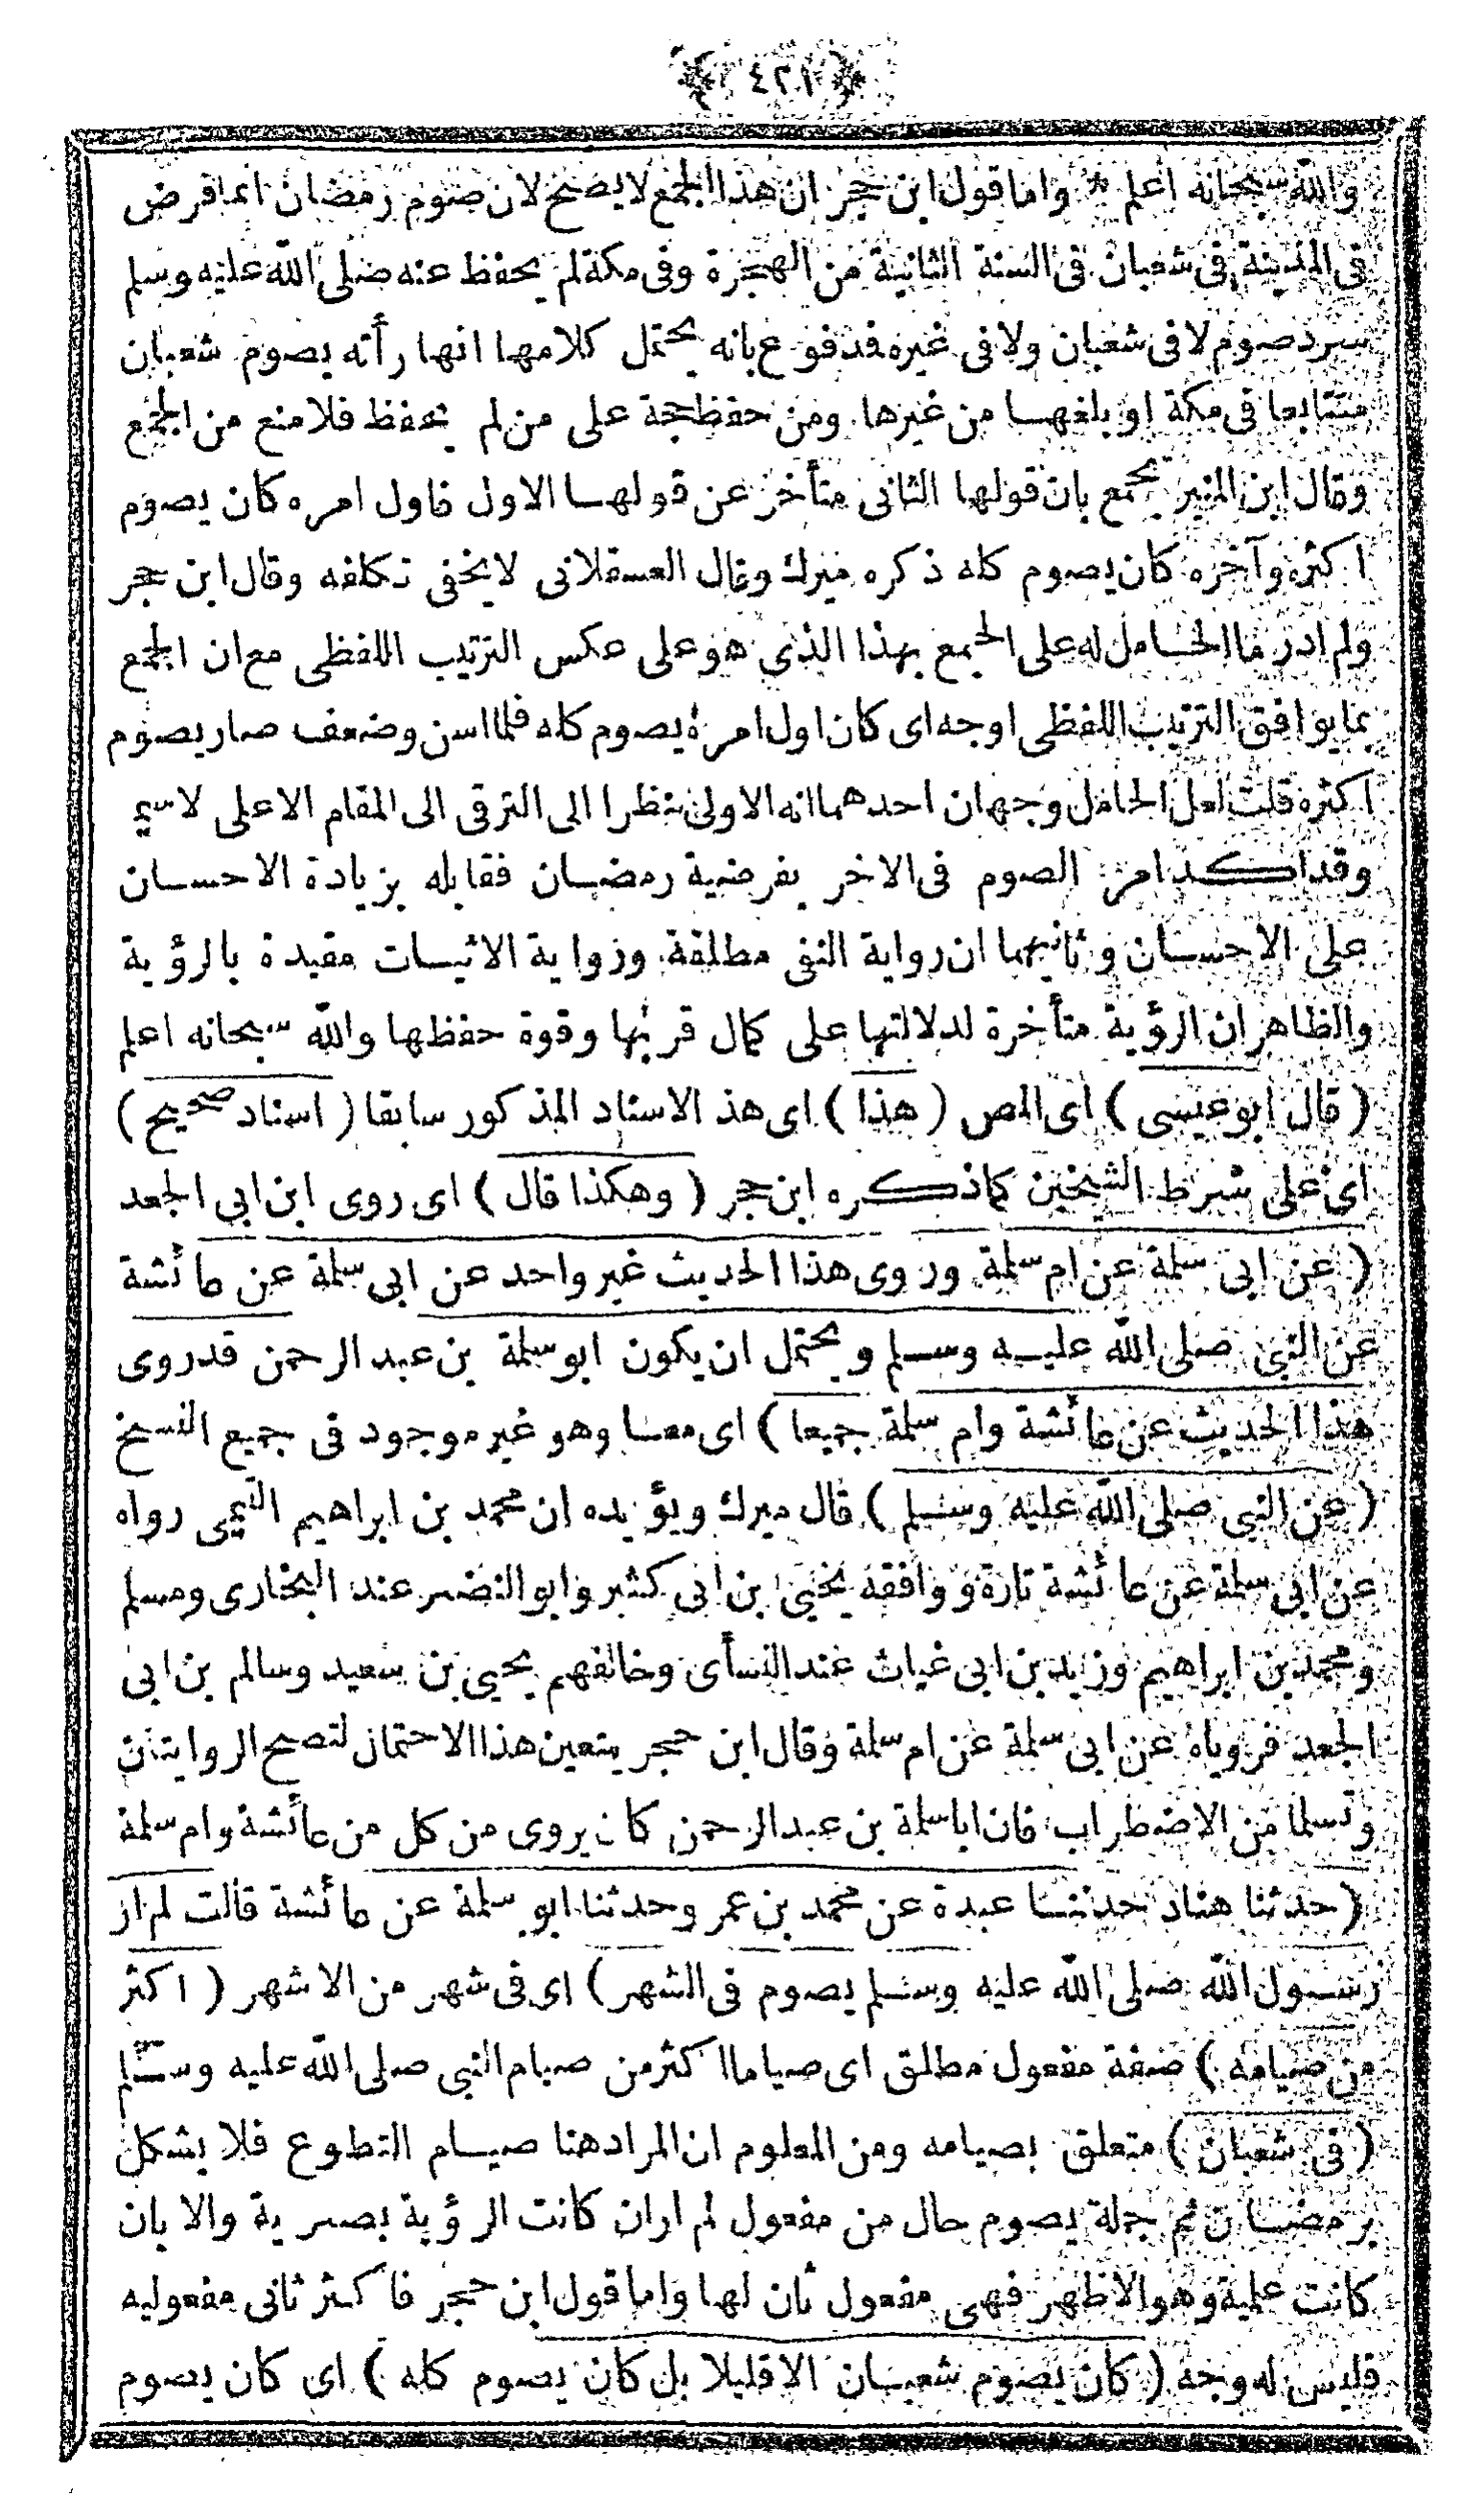 ﴿ ٤٢١ ﴾
والله سبحانه اعلم * واما قول ابن حجر ان هذا الجمع لا يصح لان صوم رمضان انما فرض
فى المدينة فى شعبان فى السنة الثانية من الهجرة وفى مكة لم يحفظ عنه صلى الله عليه وسلم
سرد صوم لا فى شعبان ولا فى غيره فدفوع بانه يحتمل كلامها انها رأته يصوم شعبان
متتابعا فى مكة او بلغها من غيرها ومن حفظ حجة على من لم يحفظ فلا منع من الجمع
وقال ابن المنير يجمع بان قولها الثانى متأخر عن قولها الاول فاول امره كان يصوم
اكثره وآخره كان يصوم كله ذكره ميرك وقال العسقلانى لا يخفى تكلفه وقال ابن حجر
ولم ادر ما الحامل له على الجمع بهذا الذى هو على عكس الترتيب اللفظى مع ان الجمع
بما يوافق الترتيب اللفظى اوجه اى كان اول امره يصوم كله فلما اسن وضعف صار يصوم
اكثره قلت لعل الحامل وجهان احدهما انه الاولى نظرا الى الترقى الى المقام الاعلى لاسيما
وقد اكد امر الصوم فى الاخر بفرضية رمضان فقابله بزيادة الاحسان
على الاحسان وثانيهما ان رواية النفى مطلقة ورواية الاثبات مقيدة بالرؤية
والظاهر ان الرؤية متأخرة لدلالتها على كمال قربها وقوة حفظها والله سبحانه اعلم
( قال ابو عيسى ) اى المص ( هذا ) اى هذ الاسناد المذكور سابقا ( اسناد صحيح )
اى على شرط الشيخين كما ذكره ابن حجر ( وهكذا قال ) اى روى ابن ابى الجعد
( عن ابى سلمة عن ام سلمة وروى هذا الحديث غير واحد عن ابى سلمة عن عائشة
عن النبى صلى الله عليه وسلم ويحتمل ان يكون ابو سلمة بن عبد الرحمن قد روى
هذا الحديث عن عائشة وام سلمة جميعا ) اى معا وهو غير موجود فى جميع النسخ
( عن النبى صلى الله عليه وسلم ) قال ميرك ويؤيده ان محمد بن ابراهيم التيمى رواه
عن ابى سلمة عن عائشة تارة ووافقه يحيى بن ابى كثير وابو النضر عند البخارى ومسلم
ومحمد بن ابراهيم وزيد بن ابى غياث عند النسأى وخالفهم يحيى بن سعيد وسالم بن ابى
الجعد فروياه عن ابى سلمة عن ام سلمة وقال ابن حجر يتعين هذا الاحتمال لتصح الروايتان
وتسلما من الاضطراب فان ابا سلمة بن عبد الرحمن كان يروى من كل من عائشة وام سلمة
( حدثنا هناد حدثنا عبدة عن محمد بن عمر وحدثنا ابو سلمة عن عائشة قالت لم ار
رسول الله صلى الله عليه وسلم يصوم فى الشهر ) اى فى شهر من الاشهر ( اكثر
من صيامه ) صفة مفعول مطلق اى صياما اكثر من صيام النبى صلى الله عليه وسلم
( فى شعبان ) متعلق بصيامه ومن المعلوم ان المراد هنا صيام التطوع فلا يشكل
برمضان ثم جملة يصوم حال من مفعول لم اران كانت الرؤية بصرية والا بان
كانت علمية وهو الاظهر فهى مفعول ثان لها واما قول ابن حجر فاكثر ثانى مفعوليه
فليس له وجه ( كان يصوم شعبان الا قليلا بل كان يصوم كله ) اى كان يصوم